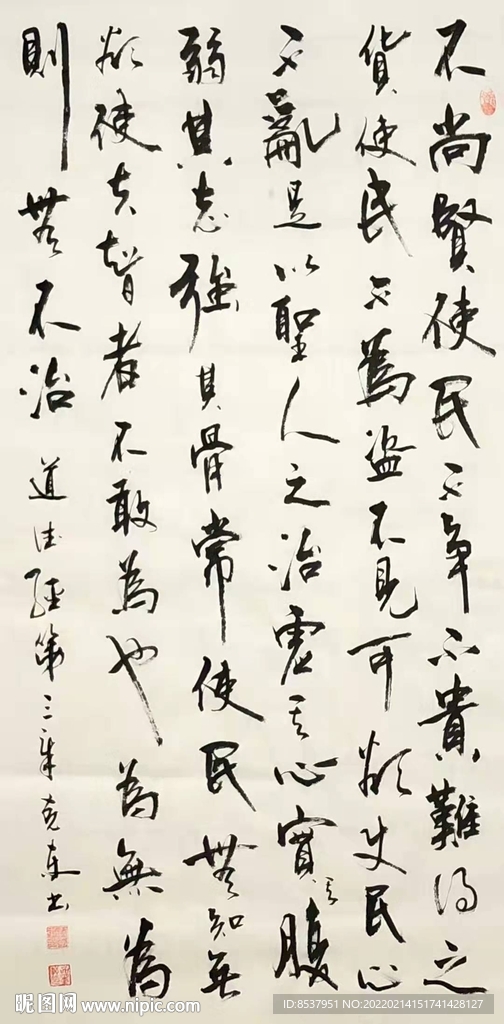 不尚賢使民不争不貴難得之
貨使民不為盜不見可欲使民心
不亂是以聖人之治虛其心實其腹
弱其志強其骨常使民無知無
欲使夫智者不敢為也為無為
則無不治 道德經第三章克東书
昵图网 www.nipic.com
ID:8537951 NO:20220214151741428127